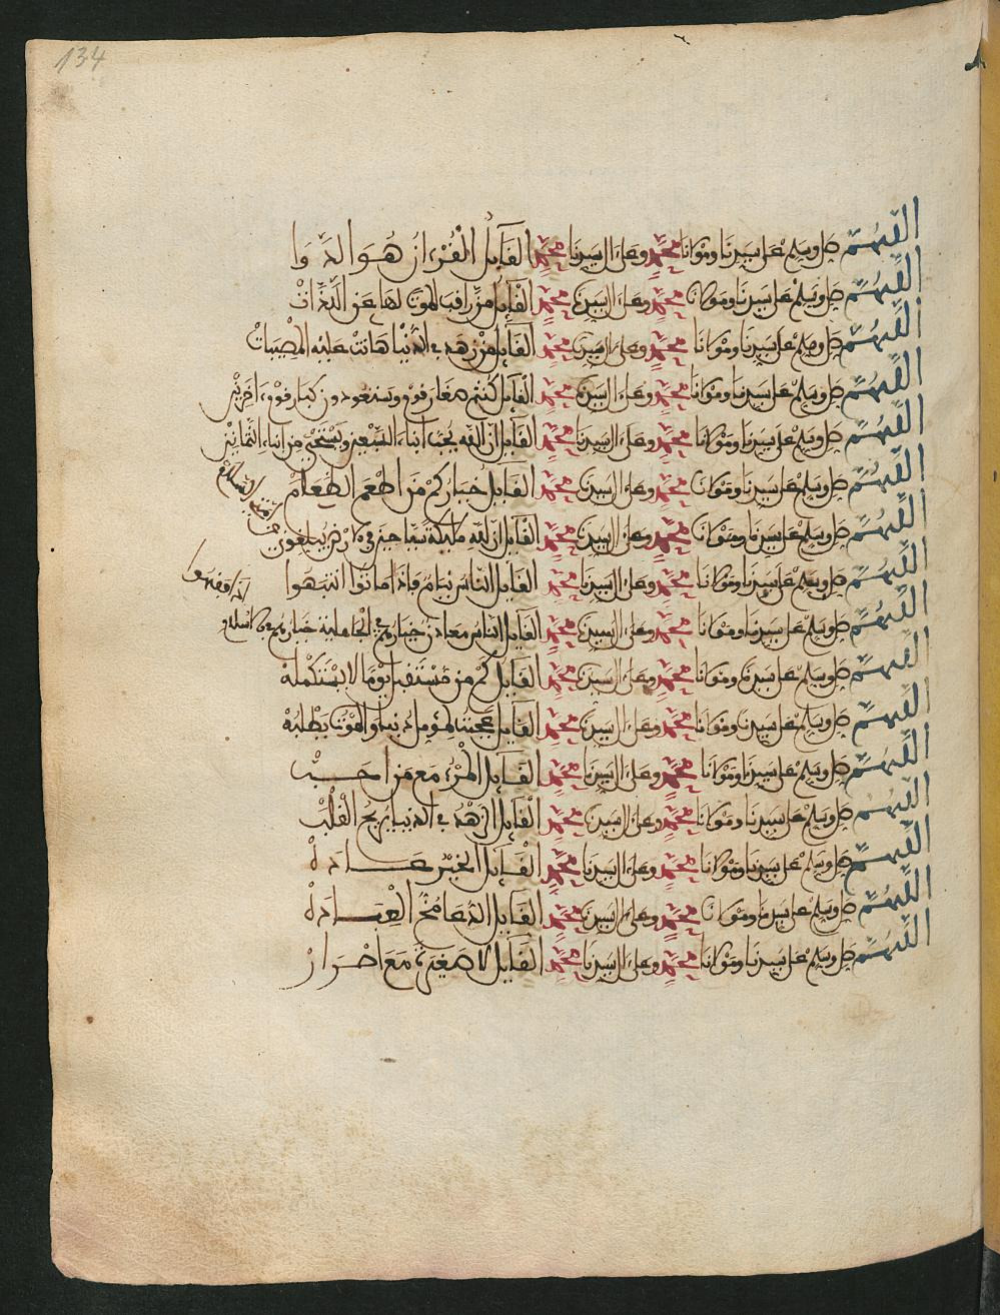 134
اللهم صل وسلم على سيدنا ومولانا محمد وعلى ءال سيدنا محمد القايل القرءان هو الدوا
اللهم صل وسلم على سيدنا ومولانا محمد وعلى ءال سيدنا محمد القايل من راقب الموت لها عن اللذات
اللهم صل وسلم على سيدنا ومولانا محمد وعلى ءال سيدنا محمد القايل من زهد في الدنيا هانت عليه المصيبات
اللهم صل وسلم على سيدنا ومولانا محمد وعلى ءال سيدنا محمد القايل كنتم صغار قوم وستعودون كبار قوم ءاخرين
اللهم صل وسلم على سيدنا ومولانا محمد وعلى ءال سيدنا محمد القايل ان الله يحب ابناء السبعين ويستحي من ابناء الثمانين
اللهم صل وسلم على سيدنا ومولانا محمد وعلى ءال سيدنا محمد القايل خياركم من اطعم الطعام
اللهم صل وسلم على سيدنا ومولانا محمد وعلى ءال سيدنا محمد القايل ان لله مليكة سياحين في الارض يبلغون
السلام
اللهم صل وسلم على سيدنا ومولانا محمد وعلى ءال سيدنا محمد القايل الناس نيام فاذا ماتوا انتبهوا
اللهم صل وسلم على سيدنا ومولانا محمد وعلى ءال سيدنا محمد القايل الناس معادن خيارهم في الجاهلية خيارهم في الاسلام
اذا فقهوا
اللهم صل وسلم على سيدنا ومولانا محمد وعلى ءال سيدنا محمد القايل كم من مستقبل يوما لا يستكمله
اللهم صل وسلم على سيدنا ومولانا محمد وعلى ءال سيدنا محمد القايل عجبت لمومل دنيا والموت يطلبه
اللهم صل وسلم على سيدنا ومولانا محمد وعلى ءال سيدنا محمد القايل المرء مع من احب
اللهم صل وسلم على سيدنا ومولانا محمد وعلى ءال سيدنا محمد القايل الزهد في الدنيا يريح القلب
اللهم صل وسلم على سيدنا ومولانا محمد وعلى ءال سيدنا محمد القايل الخير عادة
اللهم صل وسلم على سيدنا ومولانا محمد وعلى ءال سيدنا محمد القايل الدعا مخ العبادة
اللهم صل وسلم على سيدنا ومولانا محمد وعلى ءال سيدنا محمد القايل لا صغيرة مع اصرار